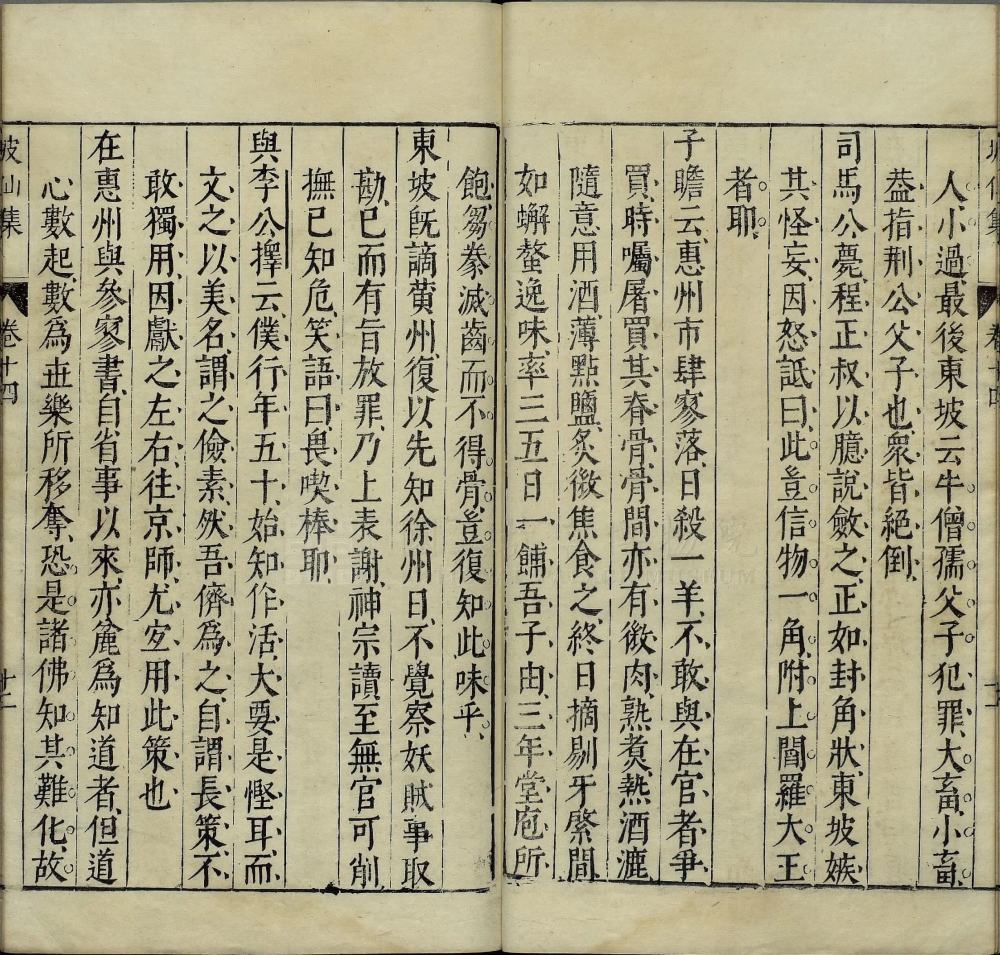 人小過最後東坡云牛僧孺父子犯罪大畜小畜
葢指荆公父子也衆皆絕倒
司馬公薨程正叔以臆說斂之正如封角狀東坡嫉
其怪妄因怒詆曰此豈信物一角附上閻羅大王
者耶
子瞻云惠州市肆寥落日殺一羊不敢與在官者爭
買時囑屠買其脊骨骨間亦有微肉熟煮熱酒漉
隨意用酒薄點鹽炙微焦食之終日摘剔牙綮間
如蠏螯逸味率三五日一餔吾子由三年堂庖所
飽芻豢滅齒而不得骨豈復知此味乎
東坡旣謫黄州復以先知徐州日不覺察妖賊事取
勘已而有旨放罪乃上表謝神宗讀至無官可削
撫已知危笑語曰畏喫棒耶
與李公擇云僕行年五十始知作活大要是慳耳而
文之以美名謂之儉素然吾儕爲之自謂長策不
敢獨用因獻之左右往京師尤宐用此策也
在惠州與參寥書自省事以來亦麄爲知道者但道
心數起數爲世樂所移奪恐是諸佛知其難化故
坡仙集
卷十四
十二